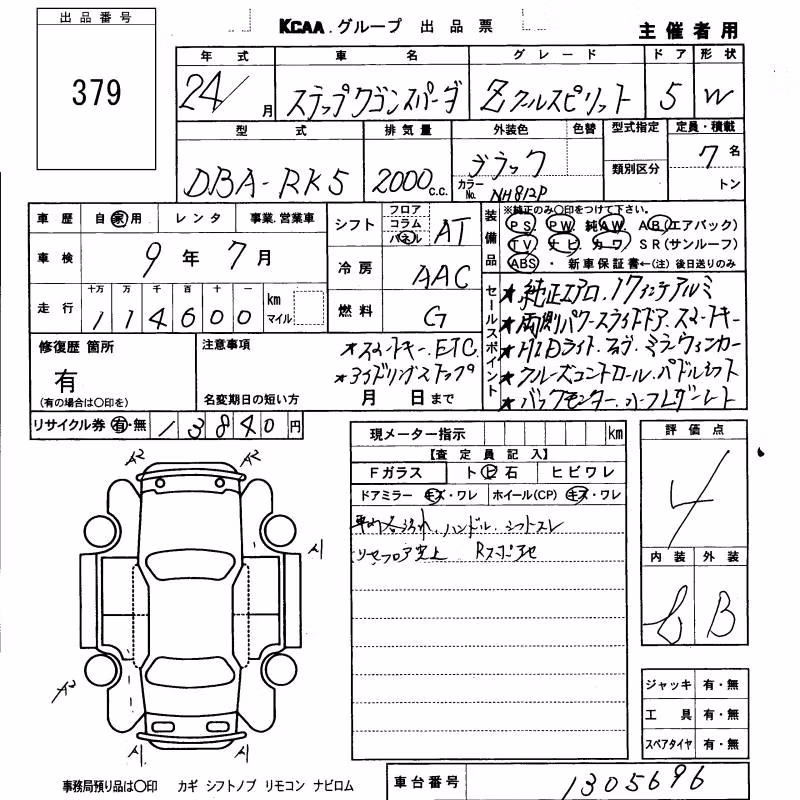 出品番号
379
KCAA.グループ 出品票
主催者用
年式 車名 グレード ドア 形状
24/ 月 ステップワゴンスパーダ Zクールスピリット 5 W
型式 排気量 外装色 色替 型式指定 定員・積載
DBA-RK5 2000 c.c. ブラック カラーNo. NH812P 類別区分 7 名 トン
車歴 自家用 レンタ 事業.営業車
シフト フロア コラム パネル AT
装備品 ※純正のみ○印をつけて下さい。
PS PW 純AW AB(エアバック)
TV ナビ カワ SR(サンルーフ)
ABS ・ 新車保証書←(注)後日送りのみ
車検 9年 7月
冷房 AAC
走行 十万 万 千 百 十 一 km マイル
114600
燃料 G
セールスポイント
★純正エアロ.17インチアルミ
★両側パワースライドドア.スマートキー
★HIDライト.フォグ.ミラーウィンカー
★クルーズコントロール.パドルシフト
★バックモニター.ハーフレザーシート
修復歴 箇所
有
(有の場合は○印を)
注意事項
★スマートキー.ETC
★アイドリングストップ
名変期日の短い方 月 日まで
リサイクル券 有・無 13840円
現メーター指示 km
【査定員記入】
Fガラス ト ビ 石 ヒビワレ
ドアミラー キズ・ワレ ホイール(CP) キズ・ワレ
ハンドル.シフトスレ
評価点
4
内装 外装
b B
A2 A2
A1
A1
A2
A1 A1
ジャッキ 有・無
工具 有・無
スペアタイヤ 有・無
事務局預り品は○印 カギ シフトノブ リモコン ナビロム
車台番号 1305696